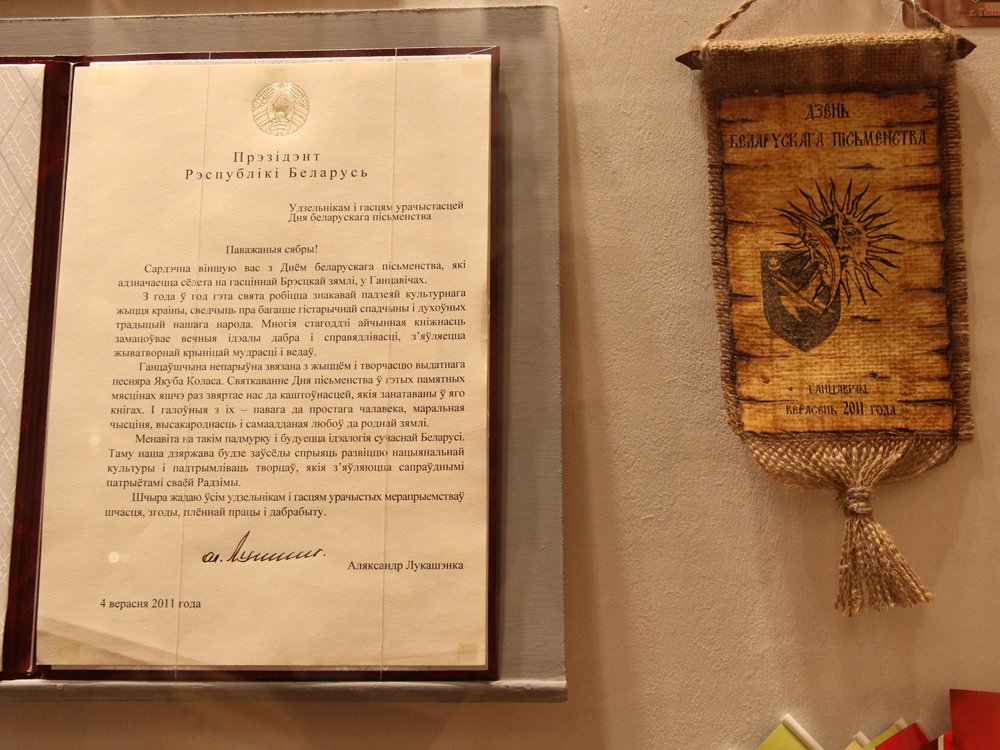 Прэзідэнт
Рэспублікі Беларусь
Удзельнікам і гасцям урачыстасцей
Дня беларускага пісьменства
Паважаныя сябры!
Сардэчна віншую вас з Днём беларускага пісьменства, які
адзначаецца сёлета на гасціннай Брэсцкай зямлі, у Ганцавічах.
З года ў год гэта свята робіцца знакавай падзеяй культурнага
жыцця краіны, сведчыць пра багацце гістарычнай спадчыны і духоўных
традыцый нашага народа. Многія стагоддзі айчынная кніжнасць
замацоўвае вечныя ідэалы дабра і справядлівасці, з'яўляецца
жыватворнай крыніцай мудрасці і ведаў.
Ганцаўшчына непарыўна звязана з жыццём і творчасцю выдатнага
песняра Якуба Коласа. Святкаванне Дня пісьменства ў гэтых памятных
мясцінах яшчэ раз звяртае нас да каштоўнасцей, якія занатаваны ў яго
кнігах. І галоўныя з іх – павага да простага чалавека, маральная
чысціня, высакароднасць і самаадданая любоў да роднай зямлі.
Менавіта на такім падмурку і будуецца ідэалогія сучаснай Беларусі.
Таму наша дзяржава будзе заўсёды спрыяць развіццю нацыянальнай
культуры і падтрымліваць творцаў, якія з'яўляюцца сапраўднымі
патрыётамі сваёй Радзімы.
Шчыра жадаю ўсім удзельнікам і гасцям урачыстых мерапрыемстваў
шчасця, згоды, плённай працы і дабрабыту.
Аляксандр Лукашэнка
4 верасня 2011 года
ДЗЕНЬ
БЕЛАРУСКАГА ПІСЬМЕНСТВА
ГАНЦАВІЧЫ
ВЕРАСЕНЬ 2011 ГОДА